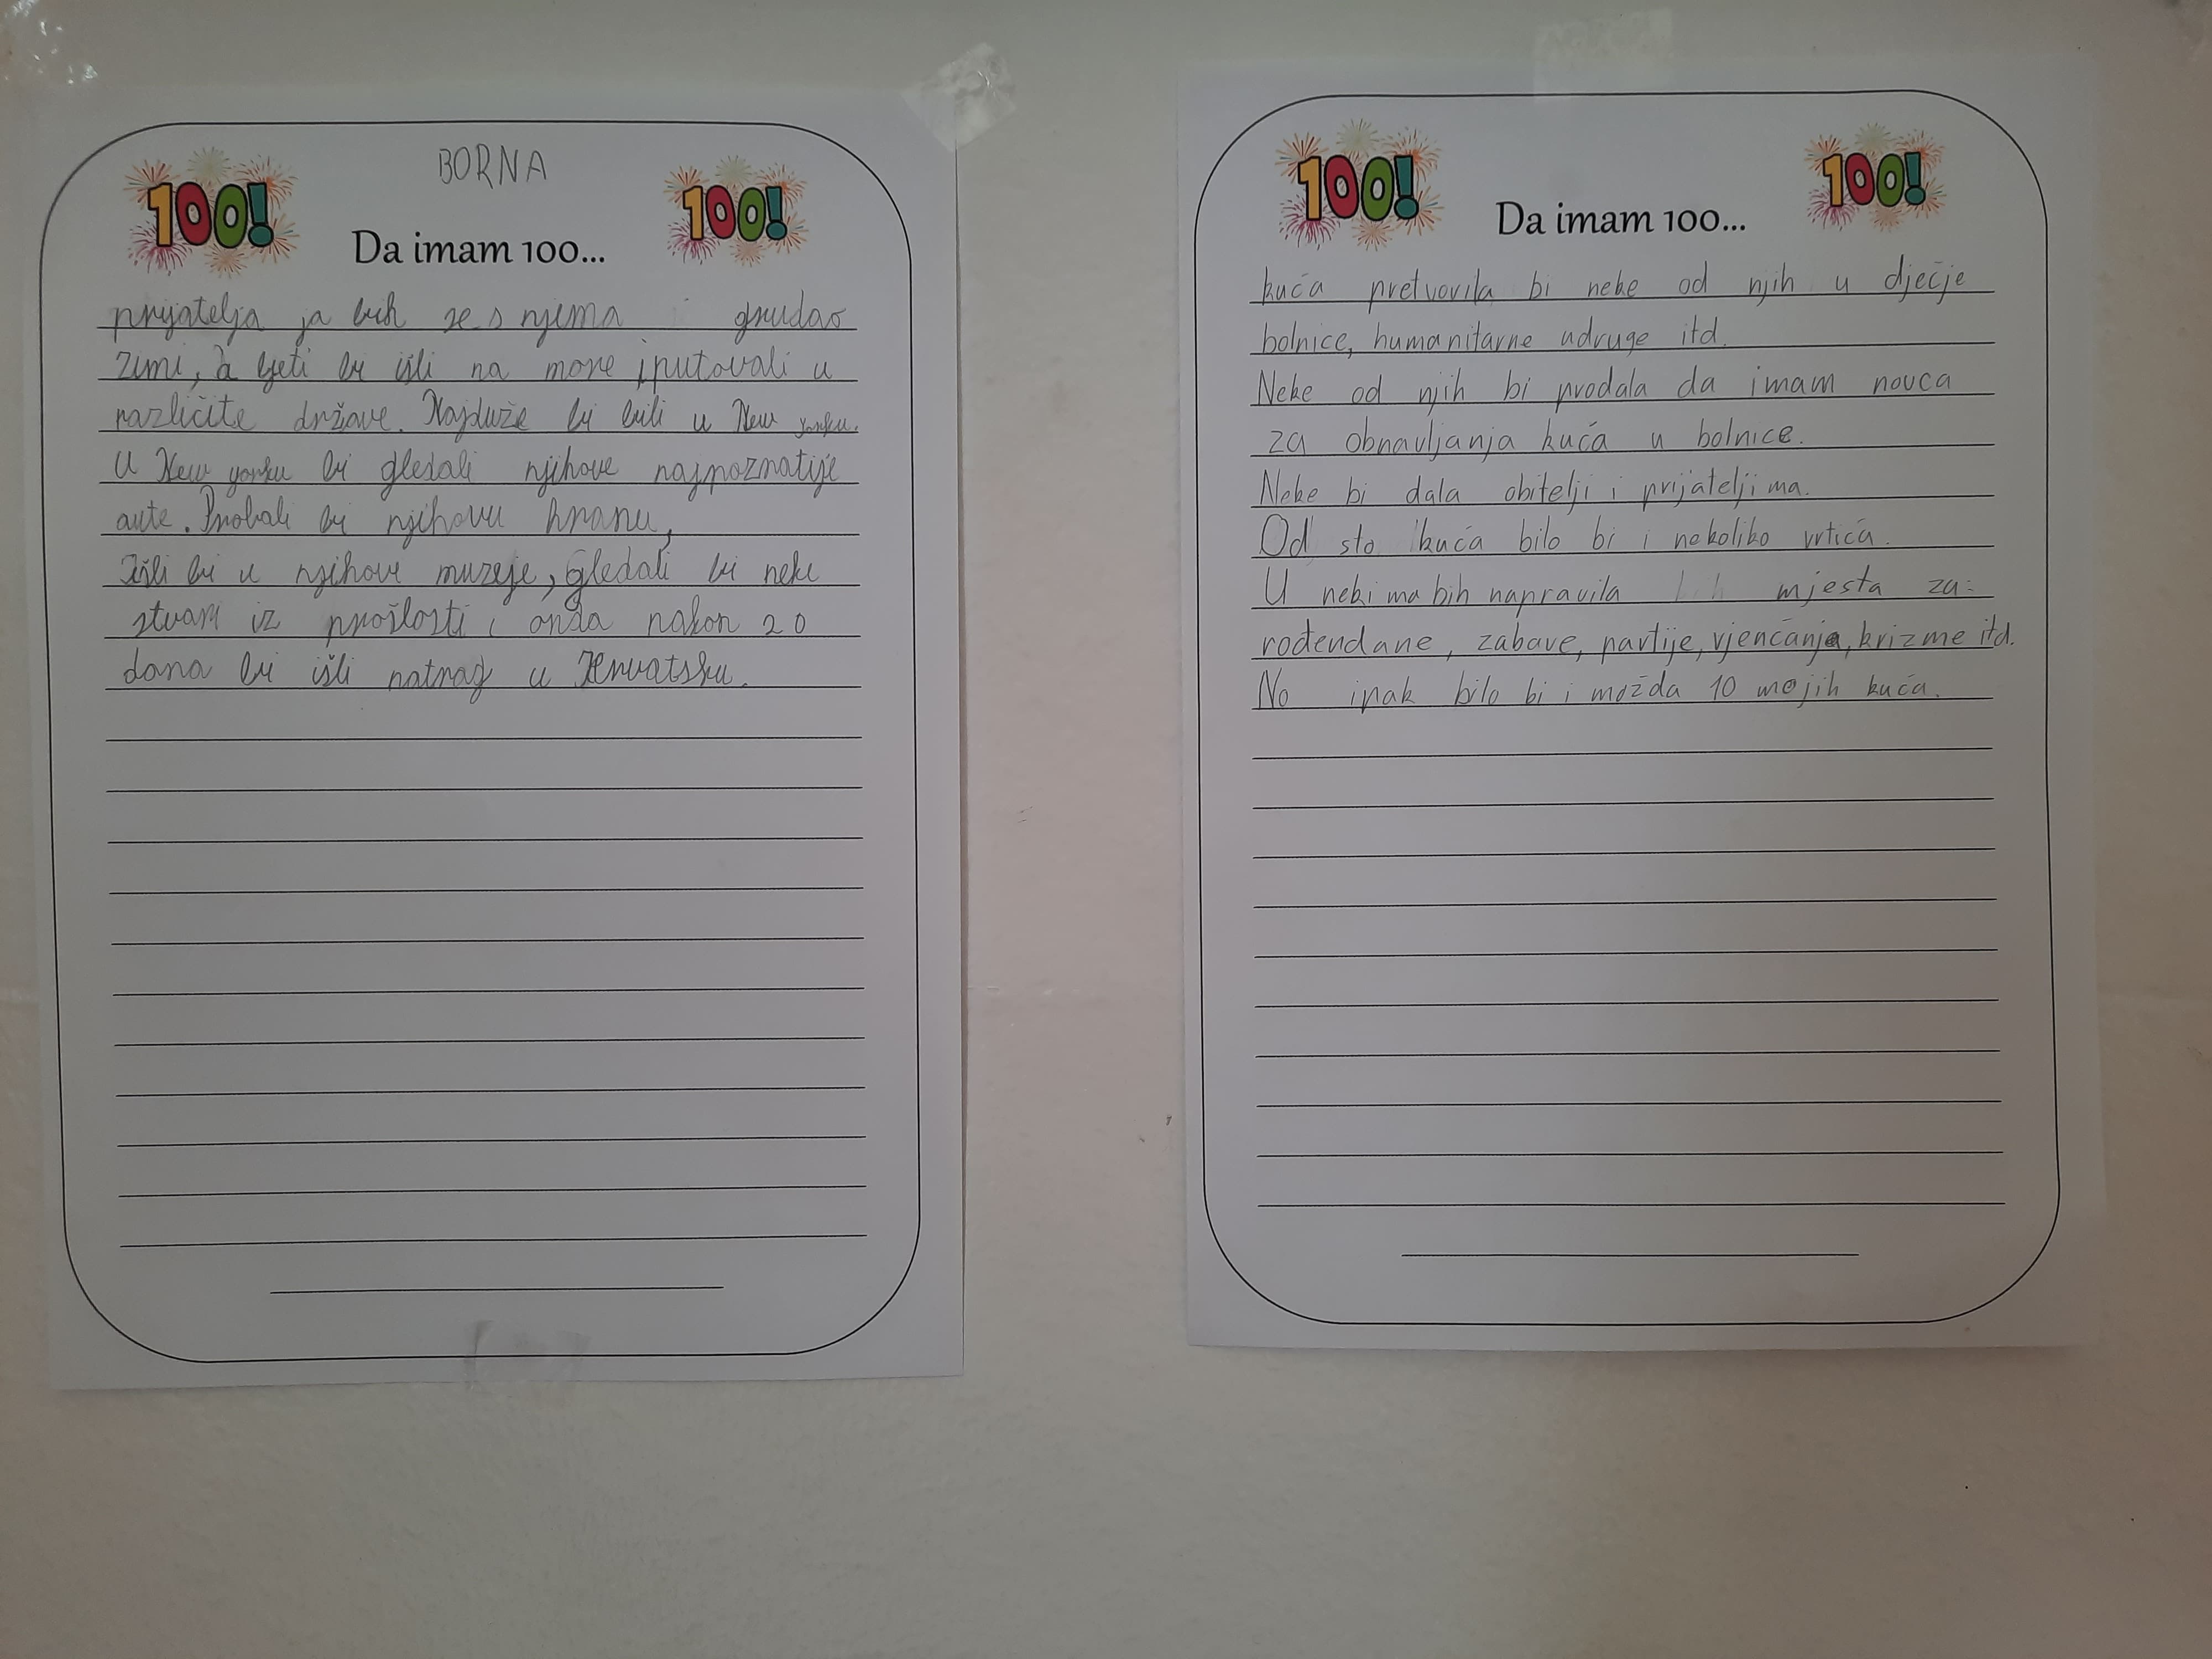 BORNA
100! 100!
Da imam 100...
prijatelja ja bih se s njima grudao
zimi, a ljeti bi išli na more i putovali u
različite države. Najduže bi bili u New yorku.
U New yorku bi gledali njihove najpoznatije
aute. Probali bi njihovu hranu,
Išli bi u njihove muzeje, Gledali bi neke
stvari iz prošlosti i onda nakon 20
dana bi išli natrag u Hrvatsku.
100! 100!
Da imam 100...
kuća pretvorila bi neke od njih u dječje
bolnice, humanitarne udruge itd.
Neke od njih bi prodala da imam novca
za obnavljanja kuća u bolnice.
Neke bi dala obitelji i prijateljima.
Od sto kuća bilo bi i nekoliko vrtića.
U nekima bih napravila mjesta za:
rođendane, zabave, partije, vjenčanja, krizme itd.
No ipak bilo bi i možda 10 mojih kuća.